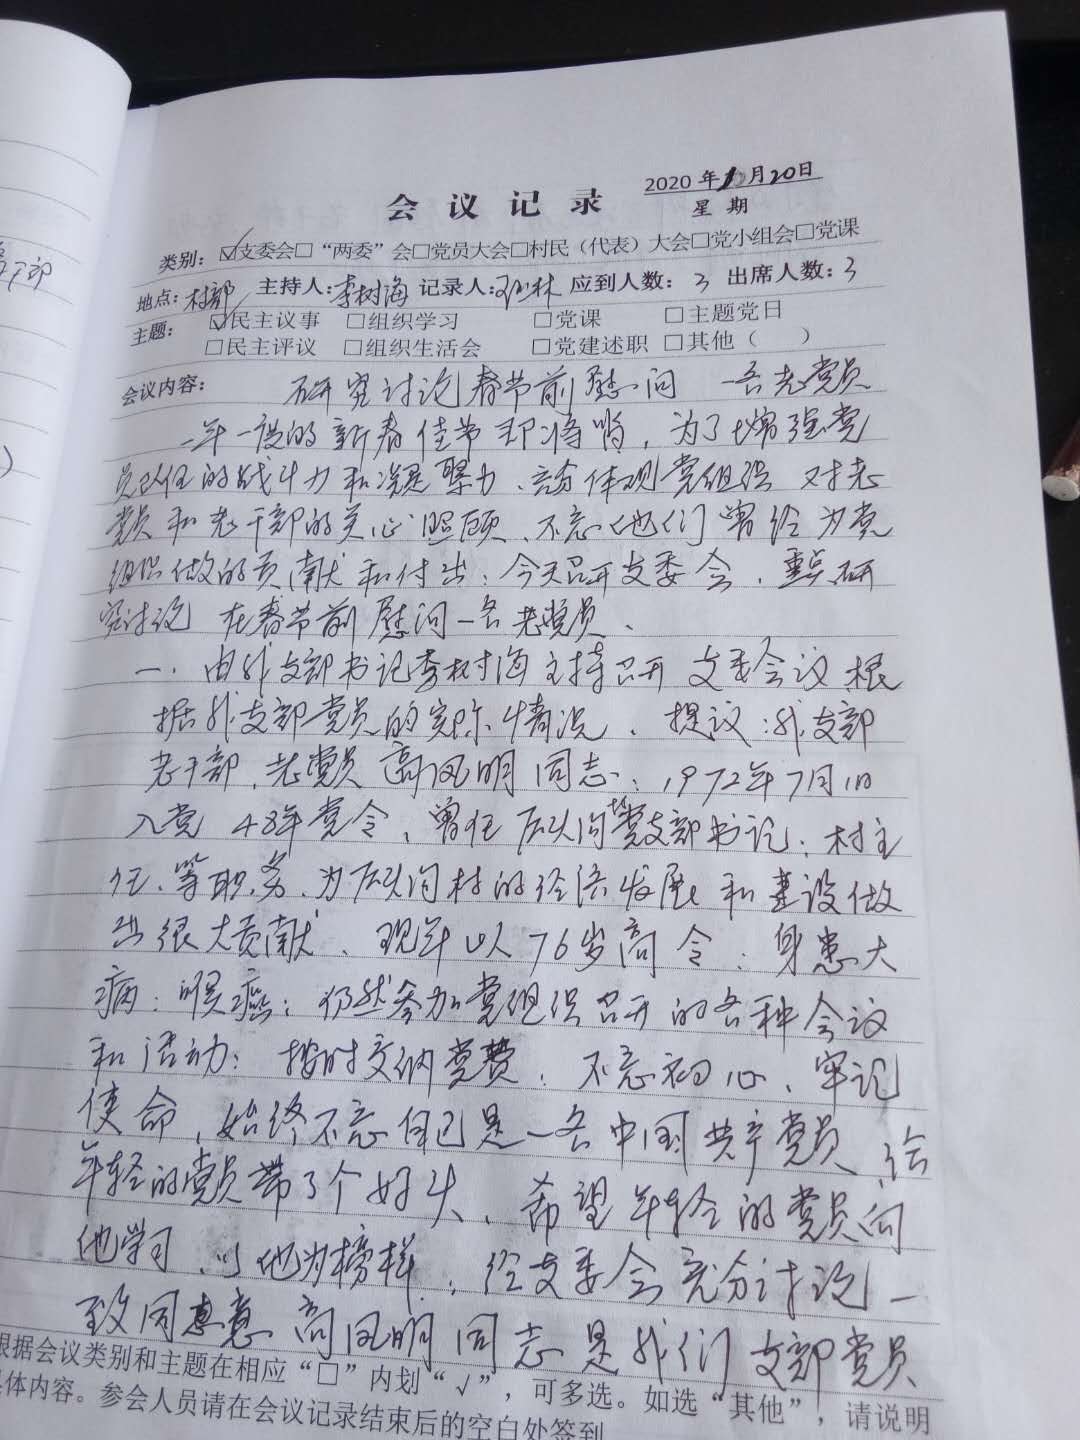 会议记录 2020年1月20日
星期
类别：☑支委会□“两委”会□党员大会□村民（代表）大会□党小组会□党课
地点：村部 主持人：李树海 记录人：林 应到人数：3 出席人数：3
主题：☑民主议事 □组织学习 □党课 □主题党日
□民主评议 □组织生活会 □党建述职 □其他（ ）
会议内容： 研究讨论春节前慰问一名老党员
一年一度的新春佳节即将，为了增强党
员的战斗力和凝聚力、体现党组织对老
党员和老干部的关心照顾、不忘他们曾经为党
组织做的贡献和付出；今天召开支委会，重点研
究讨论在春节前慰问一名老党员、
一、由我支部书记李树海主持召开支委会议根
据我支部党员的实际情况、提议：我支部
老干部，老党员高凤明同志；1972年7月1日
入党48年党令，曾任后队间村党支部书记；村主
任、等职务，为后队间村的经济发展和建设做
出很大贡献、现年以76岁高令；身患大
病：喉癌；仍然参加党组织召开的各种会议
和活动；按时交纳党费，不忘初心、牢记
使命，始终不忘自己是一名中国共产党员，给
年轻的党员带了个好头、希望年轻的党员向
他学习、以他为榜样；经支委会充分讨论一
致同意高凤明同志是我们支部党员
根据会议类别和主题在相应“□”内划“√”，可多选。如选“其他”，请说明
具体内容。参会人员请在会议记录结束后的空白处签到
干部